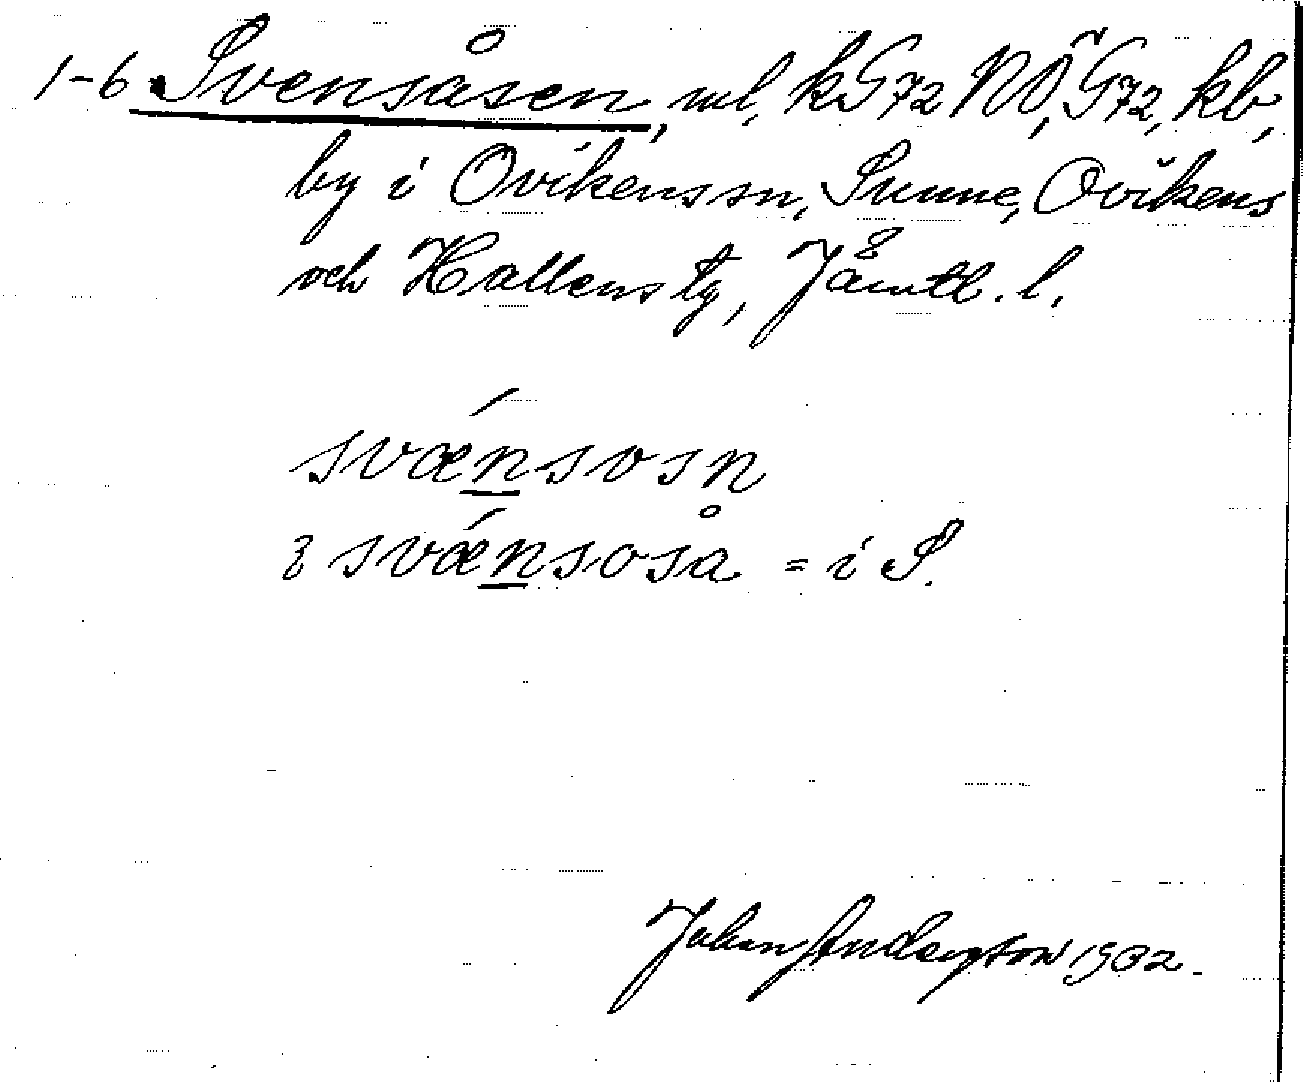 1-6 Svensåsen, ml, kG72 NÖ, G72, kb,
by i Ovikens sn, Sunne, Ovikens
och Hallens tg, Jämtl. l.
svǽnsosn
ɜ svǽnsoså = i S.
Johan Anderzson 1932.